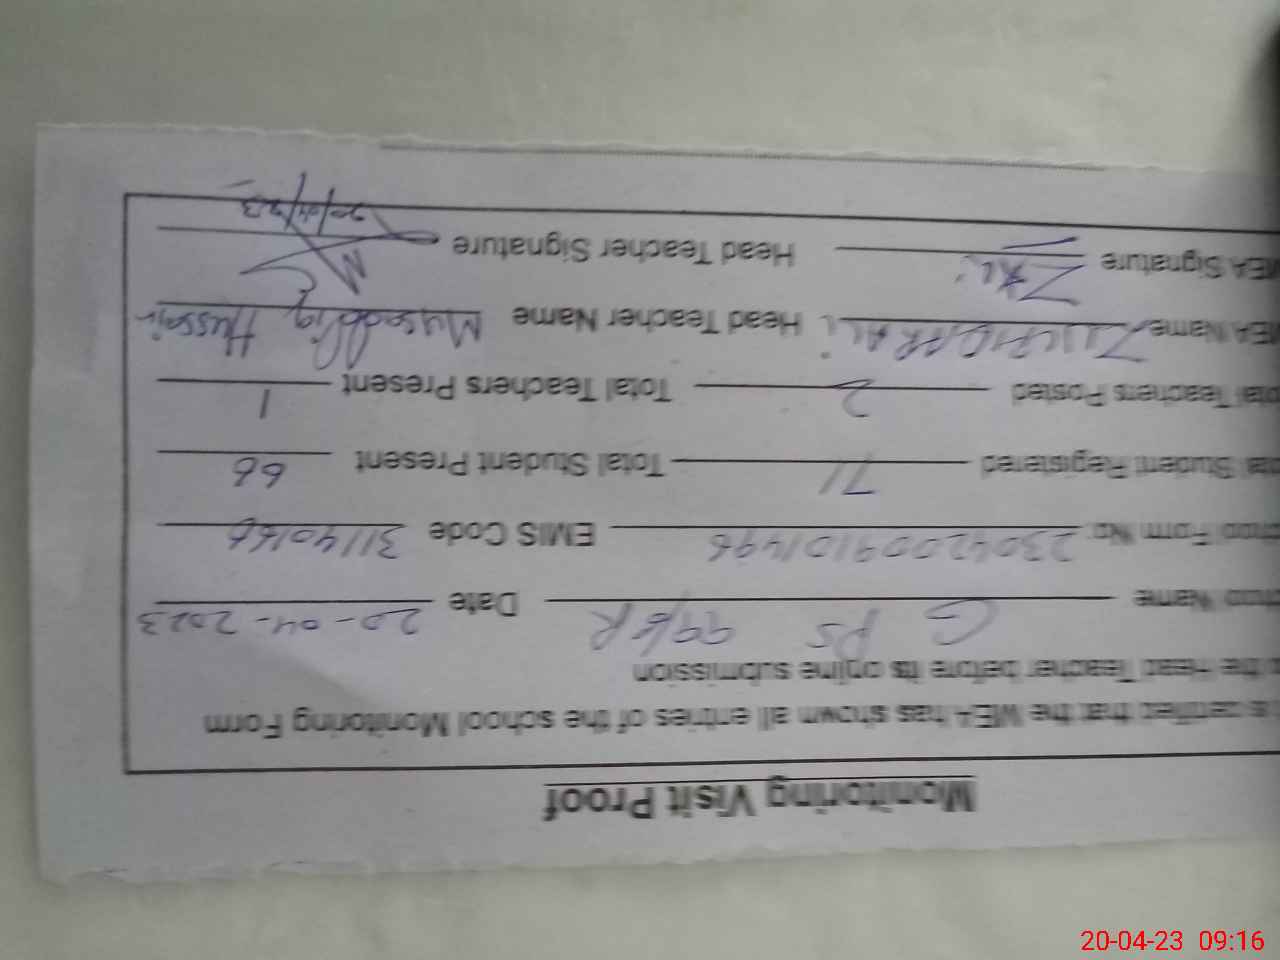 Monitoring Visit Proof
is certified that the MEA has shown all entries of the school Monitoring Form
the Head Teacher before its online submission
Name G PS 99/6R Date 20-04-2023
Form No. 23042009101496 EMIS Code 31140166
Student Registered 71 Total Student Present 66
Teachers Posted 2 Total Teachers Present 1
MEA Name ZULFIQAR ALi Head Teacher Name Musaddiq Hussain
MEA Signature Z Ali Head Teacher Signature
20/04/23
20-04-23 09:16